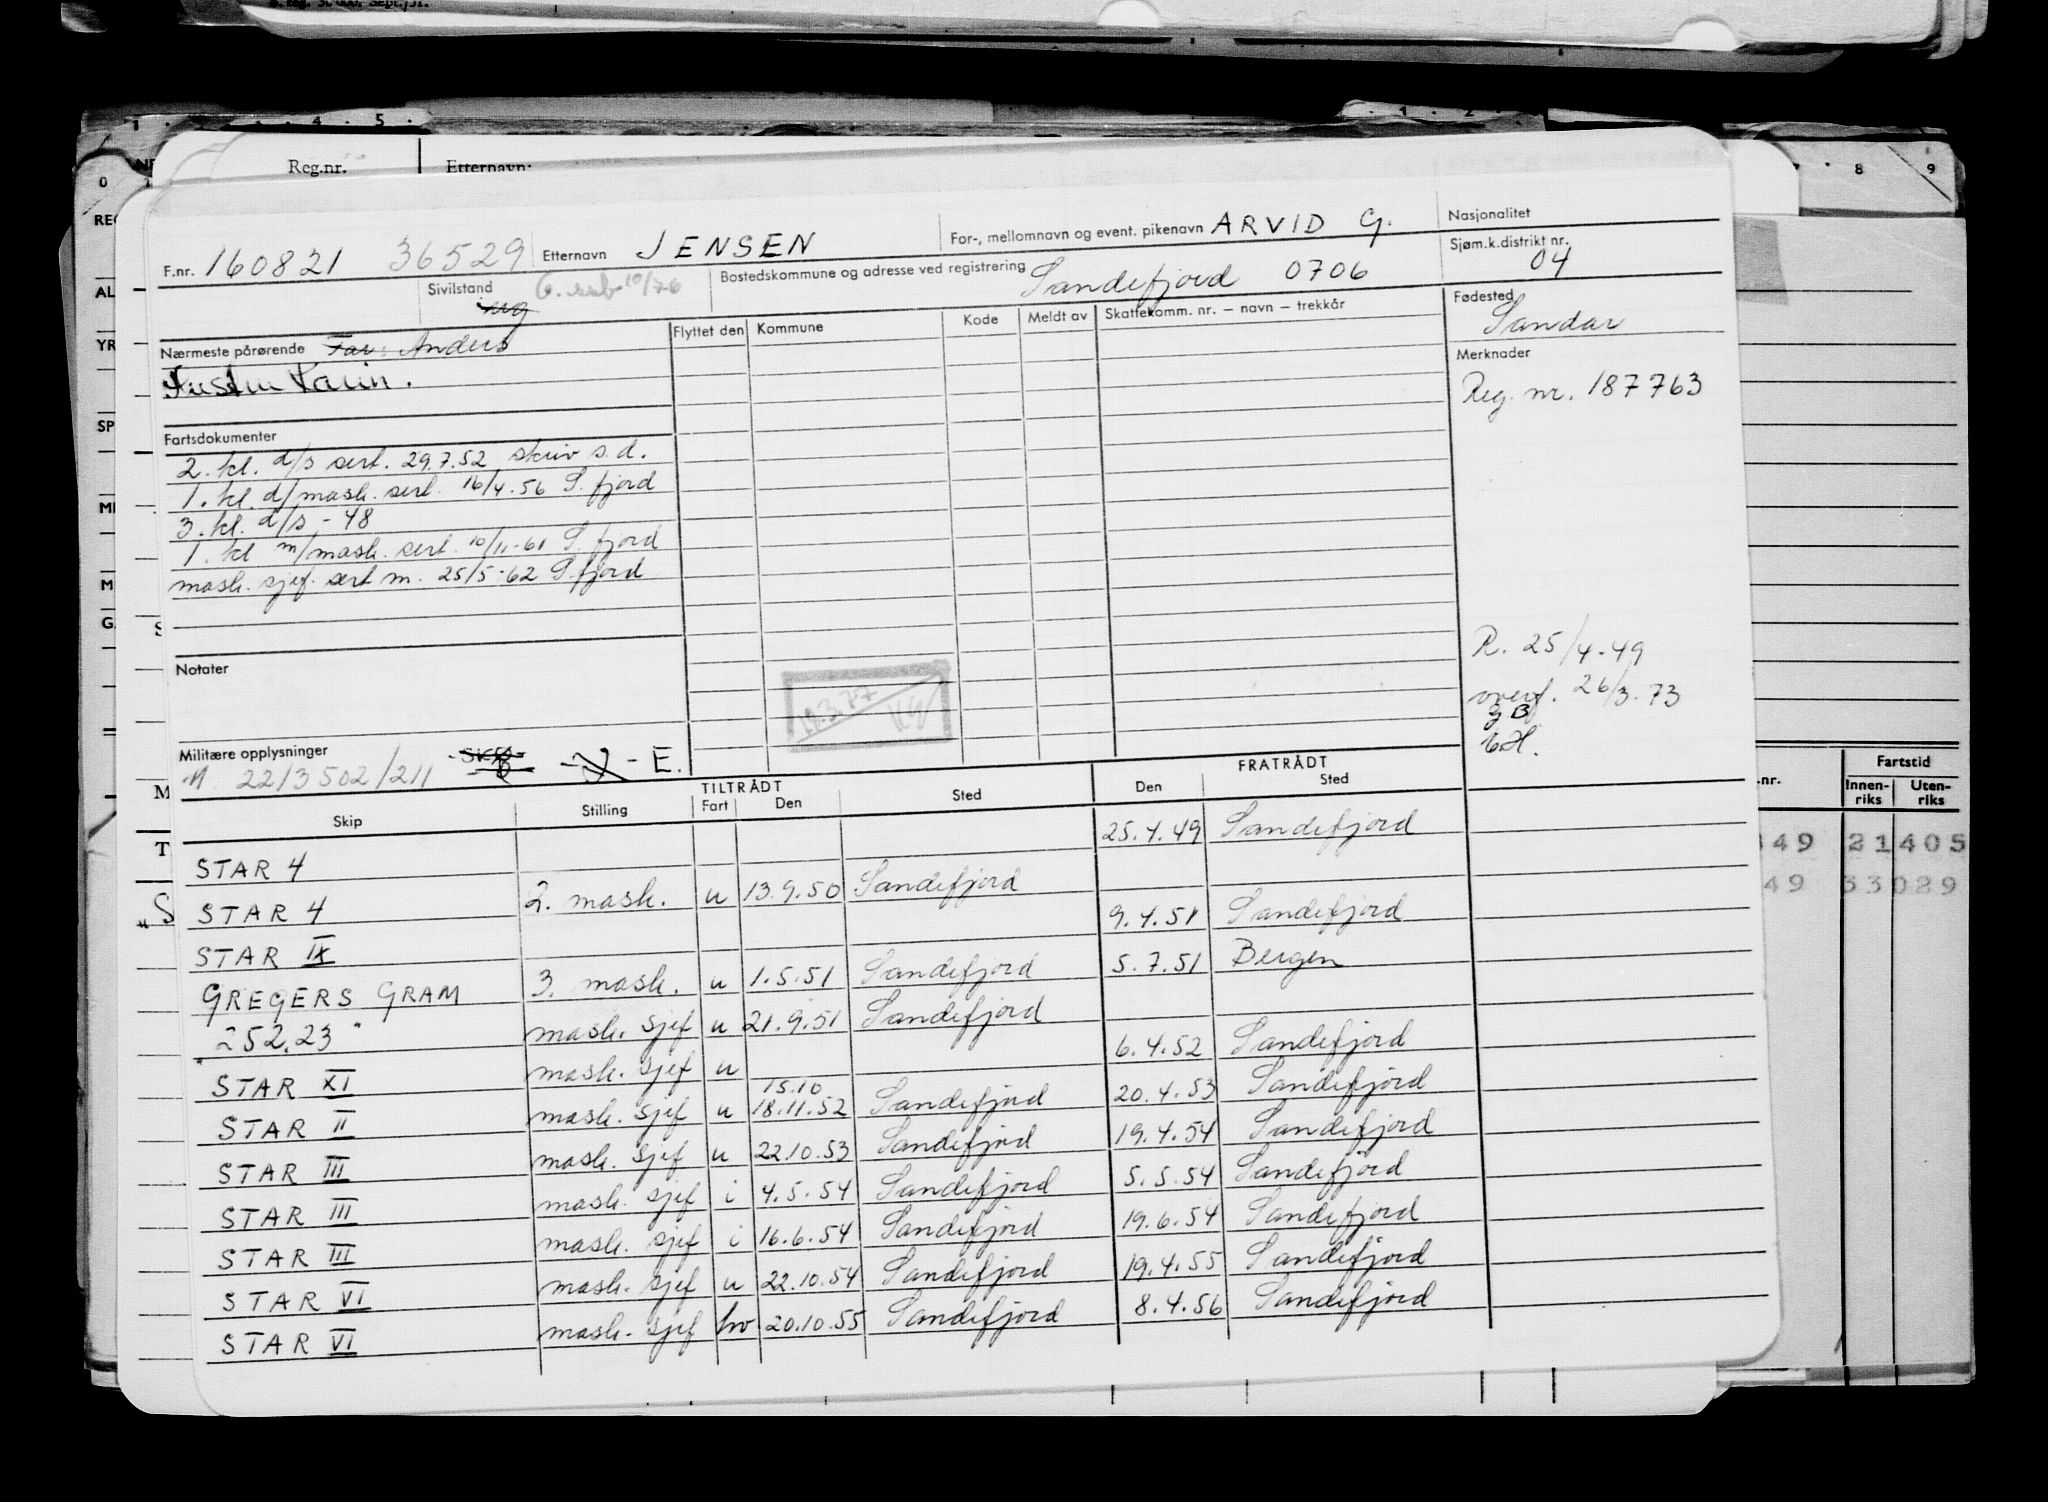 Reg.nr. Etternavn:
F.nr. 160821 36529 Etternavn JENSEN For-, mellomnavn og event. pikenavn ARVID G. Nasjonalitet
Sivilstand ug 10/76 Bostedskommune og adresse ved registrering Sandefjord 0706 Sjøm.k.distrikt nr. 04
Nærmeste pårørende Far: Anders Flyttet den Kommune Kode Meldt av Skattekomm. nr. – navn – trekkår Fødested Sandar
Hustru Karin.
Merknader
Reg. nr. 187763
Fartsdokumenter
2. kl. d/s sert. 29.7.52 skriv s.d.
1. kl. d/mask. sert. 16/4-56 S.fjord
3. kl. d/s - 48
1. kl m/mask. sert. 10/11-61 S.fjord
mask. sjef. sert m. 25/5-62 S.fjord
R. 25/4-49
overf. 26/3.73
Notater
Militære opplysninger
M 2213502/211 - E.
TILTRÅDT FRATRÅDT
Skip Stilling Fart Den Sted Den Sted
STAR 4 25.4.49 Sandefjord
STAR 4 2. mask. u 13.9.50 Sandefjord
STAR IX 9.4.51 Sandefjord
GREGERS GRAM 3. mask. u 1.5.51 Sandefjord 5.7.51 Bergen
"252.23" mask. sjef u 21.9.51 Sandefjord
STAR XI mask. sjef u 6.4.52 Sandefjord
STAR II mask. sjef u 15.10 18.11.52 Sandefjord 20.4.53 Sandefjord
STAR III mask. sjef u 22.10.53 Sandefjord 19.4.54 Sandefjord
STAR III mask. sjef i 4.5.54 Sandefjord 5.5.54 Sandefjord
STAR III mask. sjef i 16.6.54 Sandefjord 19.6.54 Sandefjord
STAR VI mask. sjef u 22.10.54 Sandefjord 19.4.55 Sandefjord
STAR VI mask. sjef hv 20.10.55 Sandefjord 8.4.56 Sandefjord
Fartstid
Innen-riks Uten-riks
49 21405
49 33029